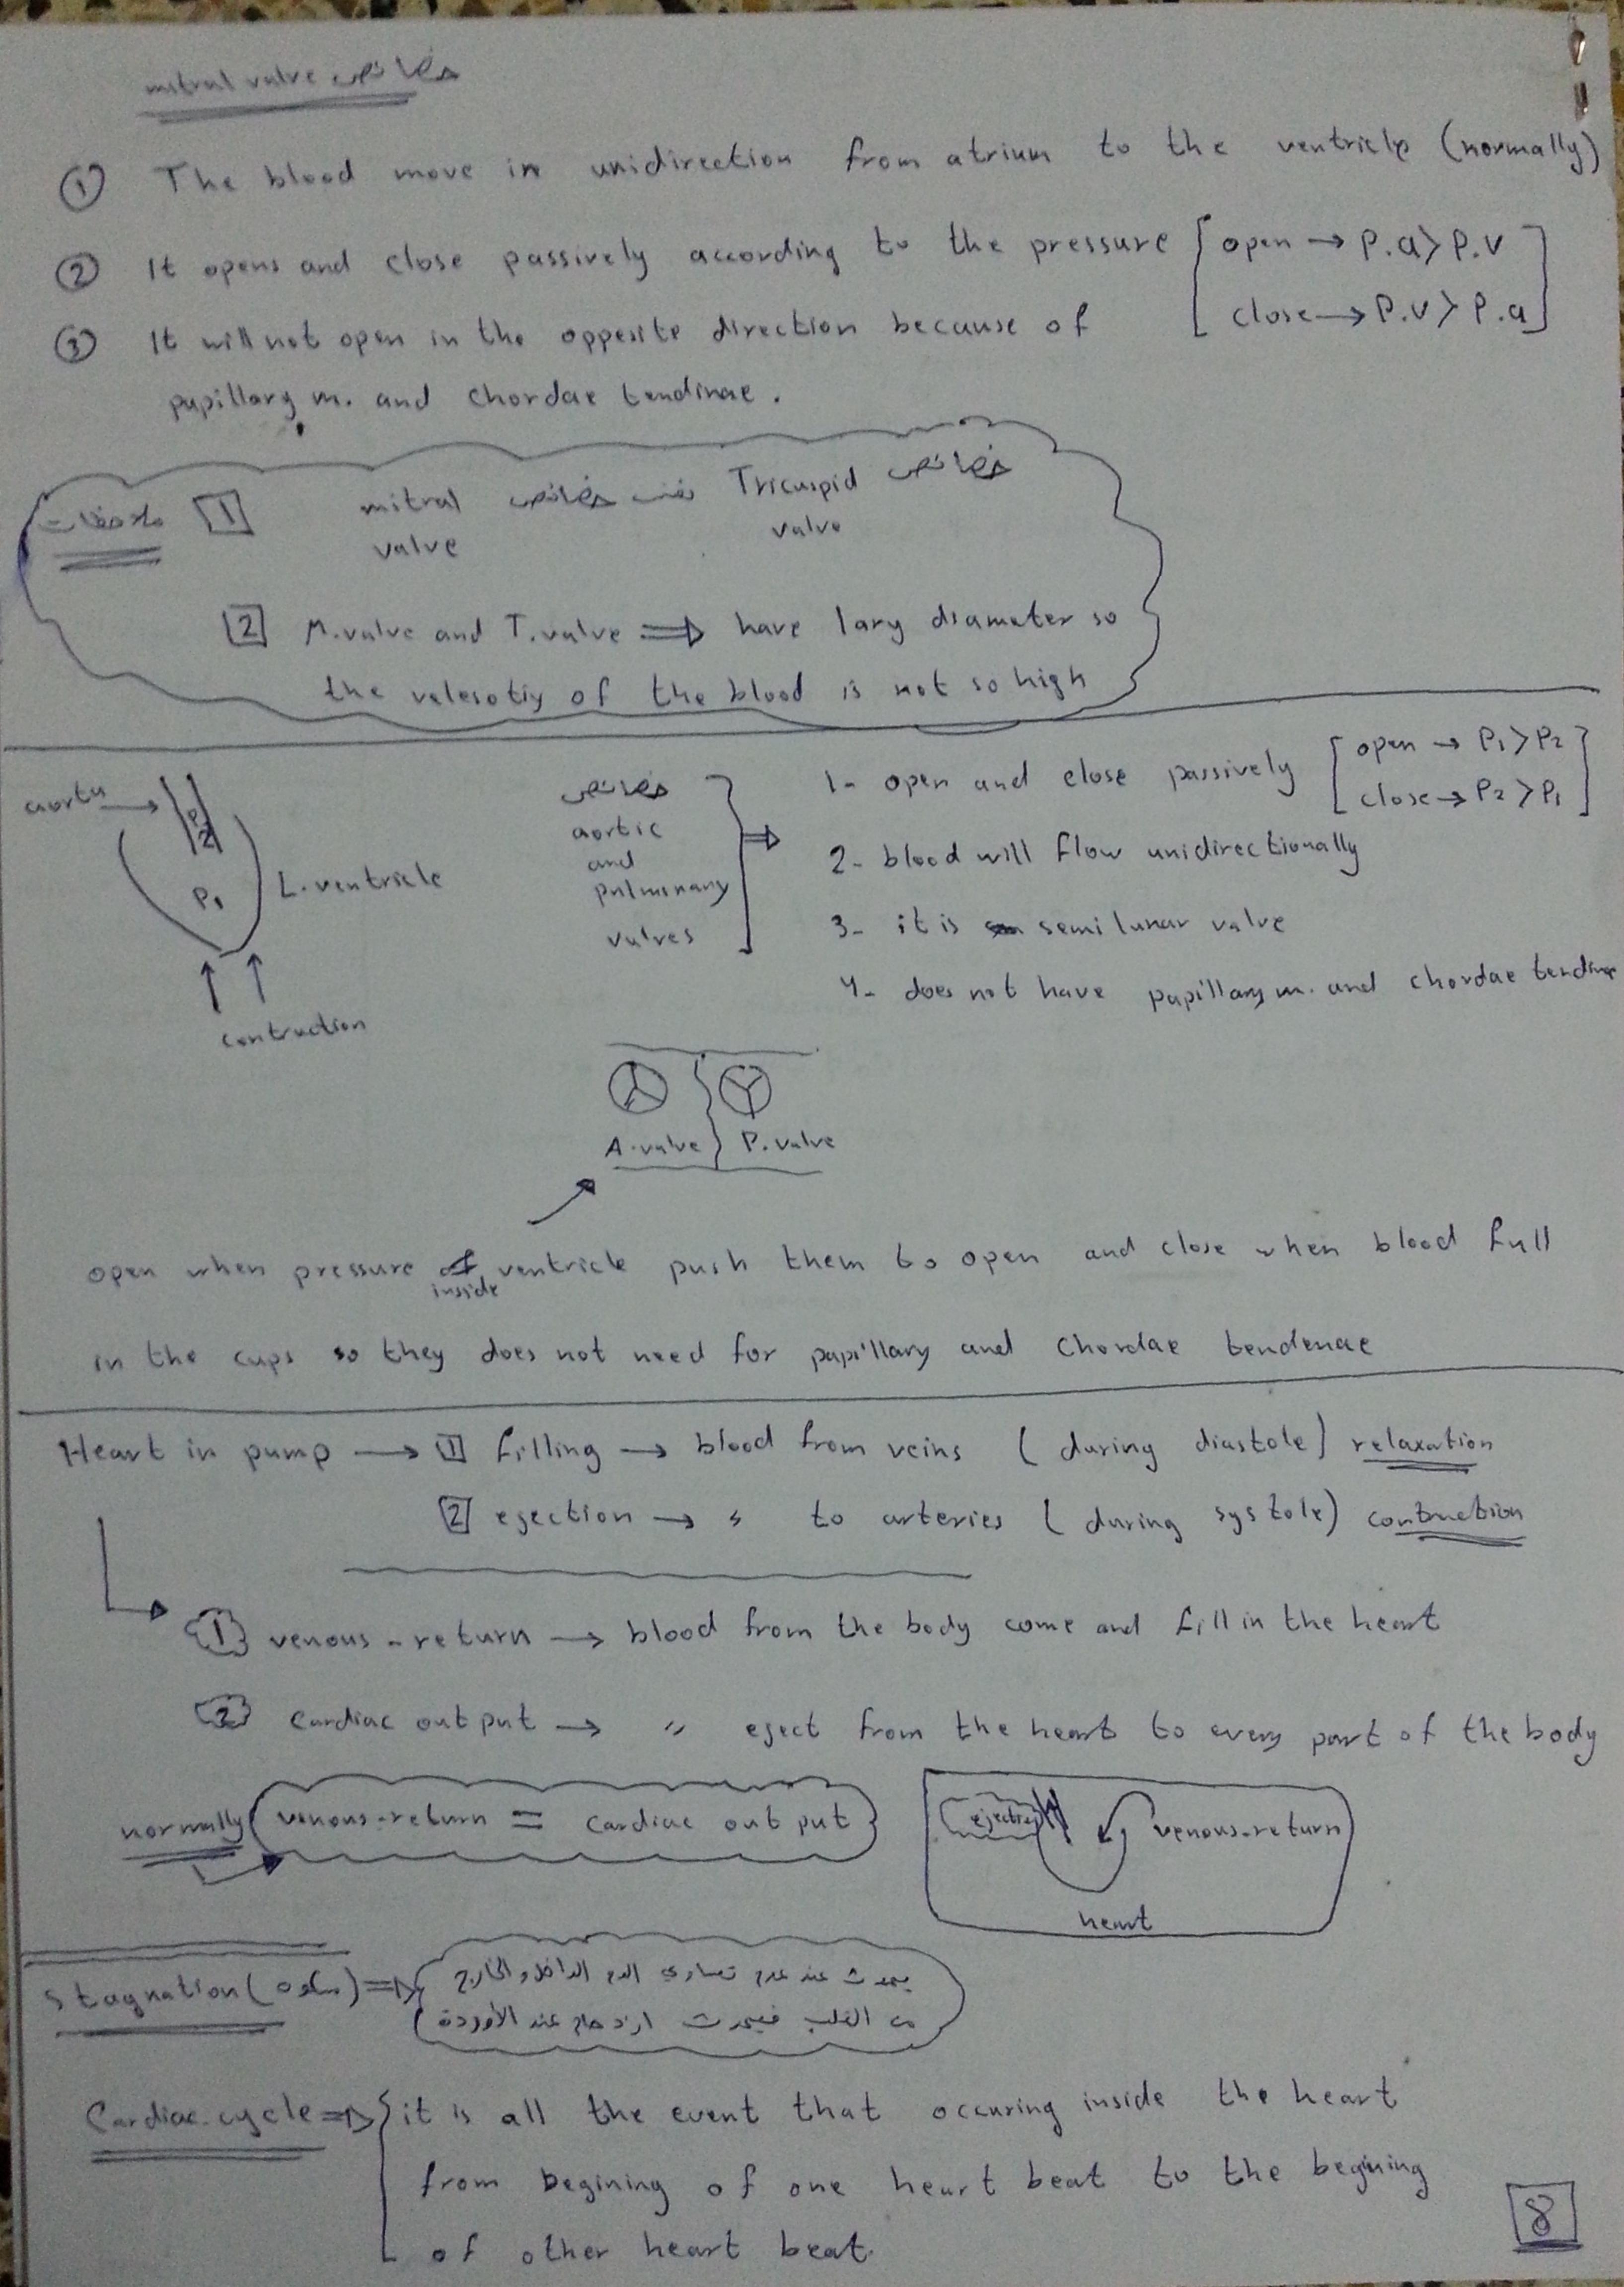 خصائص mitral valve
① The blood move in unidirection from atrium to the ventricle (normally)
② It opens and close passively according to the pressure [open → P.a > P.v
close → P.v > P.a]
③ It will not open in the opposite direction because of
papillary m. and chordae tendinae.
ملاحظات [1] خصائص Tricuspid valve نفس خصائص mitral valve
[2] M.valve and T.valve ⇒ have larg diameter so
the velesotiy of the blood is not so high
aorta →
P2
P1
L. ventricle
contraction
خصائص
aortic
and
pulmunary
valves
1- open and close passively [open → P1 > P2
close → P2 > P1]
2- blood will flow unidirectionally
3- it is semilunar valve
4- does not have papillary m. and chordae tendinae
A.valve P.valve
open when pressure inside ventricle push them to open and close when blood full
in the cups so they does not need for papillary and chordae tendenae
Heart in pump → [1] filling → blood from veins (during diastole) relaxation
[2] ejection → " to arteries (during systole) contraction
① venous-return → blood from the body come and fill in the heart
② cardiac output → " eject from the heart to every part of the body
normally (venous-return = cardiac output)
ejection
venous-return
heart
Stagnation (ركود) ⇒ يحدث عند عدم تساوي الدم الداخل والخارج
من القلب فيحدث ازدحام عند الأوردة
Cardiac-cycle ⇒ it is all the event that occuring inside the heart
from begining of one heart beat to the begining
of other heart beat.
8